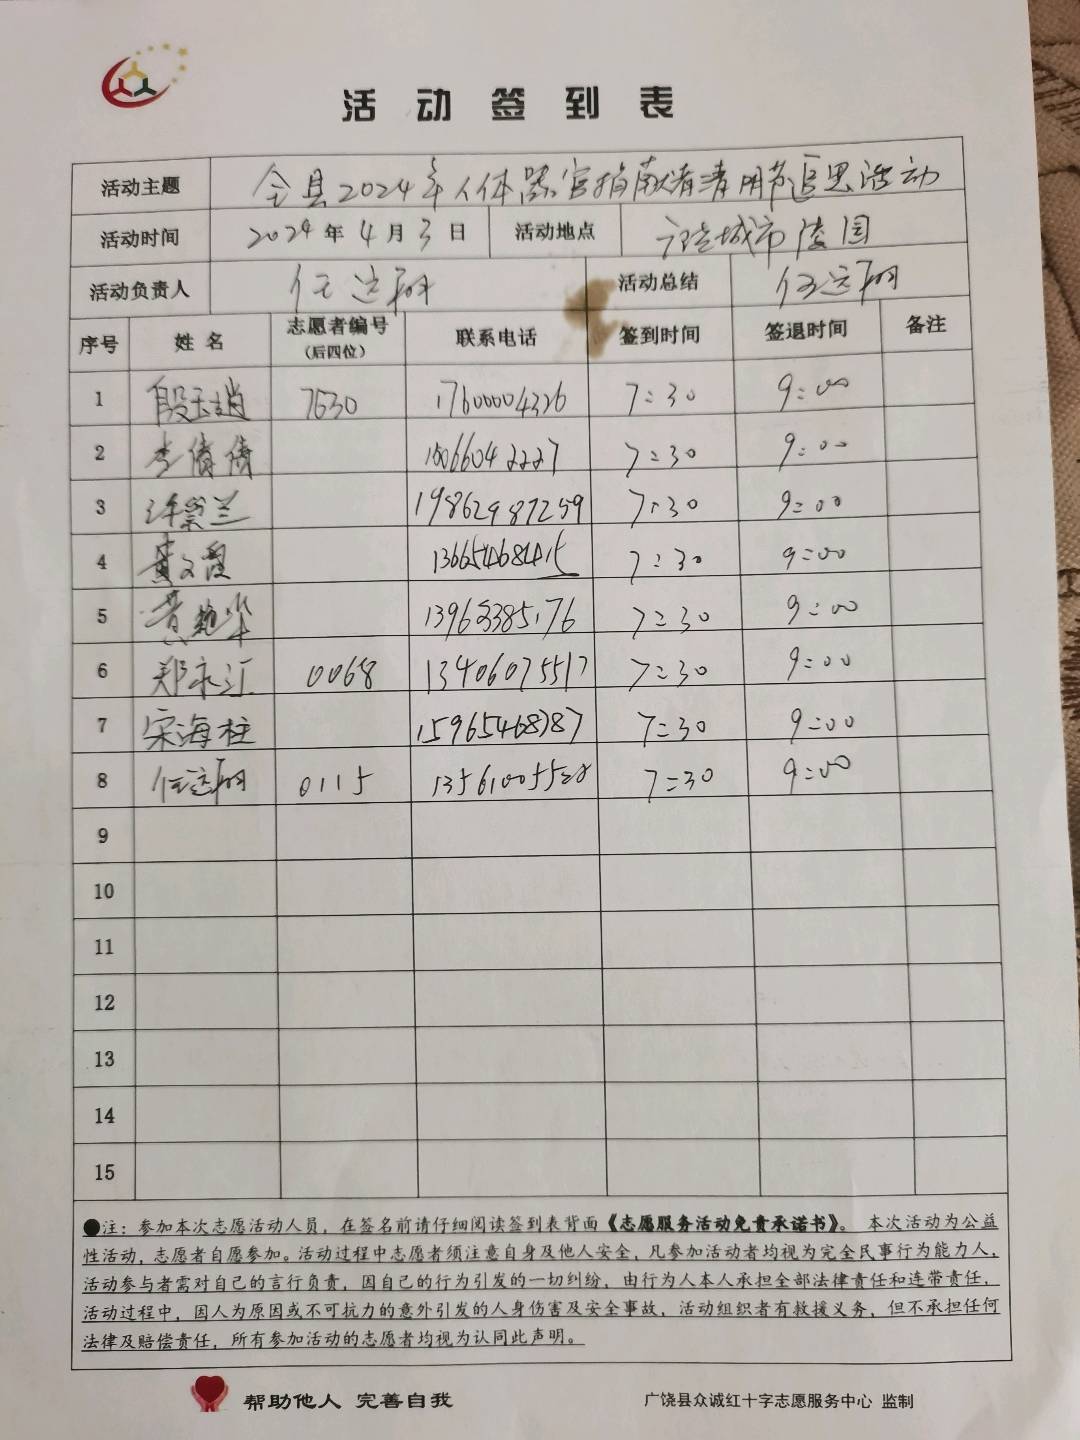 活动签到表
活动主题 全县2024年人体器官捐献者清明节追思活动
活动时间 2024年4月3日 活动地点 广饶城市陵园
活动负责人 任运翔 活动总结 任运翔
序号 姓名 志愿者编号（后四位） 联系电话 签到时间 签退时间 备注
1 段玉趙 7630 17600004326 7:30 9:00
2 李倩倩 15066042227 7:30 9:00
3 19862987259 7:30 9:00
4 黄文霞 13665468415 7:30 9:00
5 黄艳华 7:30 9:00
6 郑永江 0068 13406075517 7:30 9:00
7 宋海柱 15965468787 7:30 9:00
8 任运翔 0115 13561005528 7:30 9:00
9
10
11
12
13
14
15
●注：参加本次志愿活动人员，在签名前请仔细阅读签到表背面《志愿服务活动免责承诺书》。 本次活动为公益
性活动，志愿者自愿参加。活动过程中志愿者须注意自身及他人安全，凡参加活动者均视为完全民事行为能力人，
活动参与者需对自己的言行负责，因自己的行为引发的一切纠纷，由行为人本人承担全部法律责任和连带责任，
活动过程中，因人为原因或不可抗力的意外引发的人身伤害及安全事故，活动组织者有救援义务，但不承担任何
法律及赔偿责任，所有参加活动的志愿者均视为认同此声明。
帮助他人 完善自我 广饶县众诚红十字志愿服务中心 监制